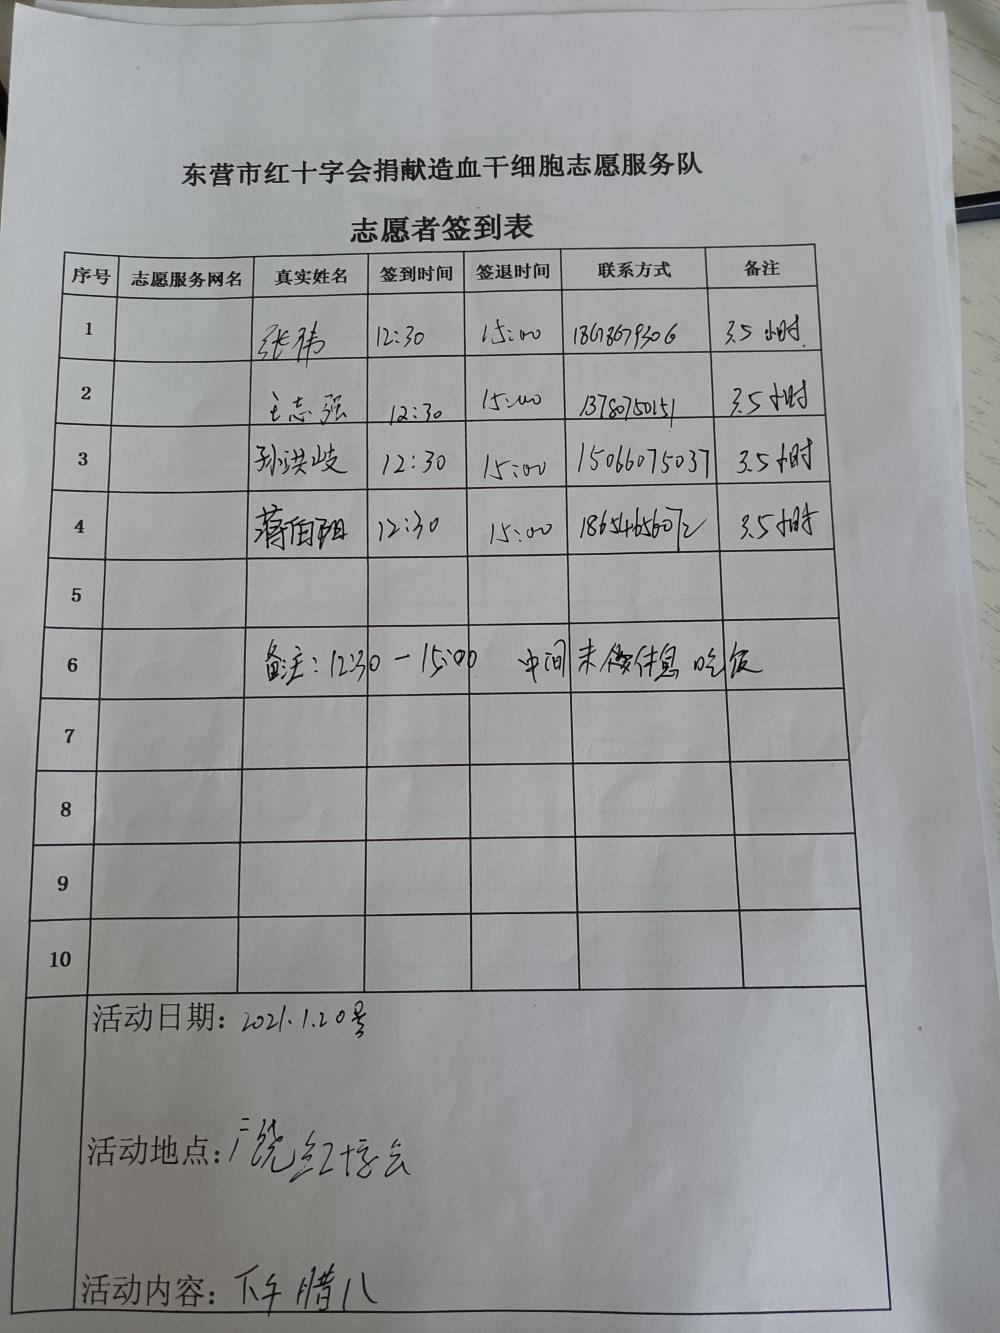 东营市红十字会捐献造血干细胞志愿服务队
志愿者签到表
序号 志愿服务网名 真实姓名 签到时间 签退时间 联系方式 备注
1 张祎 12:30 15:00 18678679306 3.5小时
2 王志强 12:30 15:00 13780750151 3.5小时
3 孙洪岐 12:30 15:00 15066075037 3.5小时
4 蒋伯阳 12:30 15:00 3.5小时
5
6 备注:12:30-15:00 中间未休息吃饭
7
8
9
10
活动日期:2021.1.20号
活动地点:广饶红十字会
活动内容:下午腊八